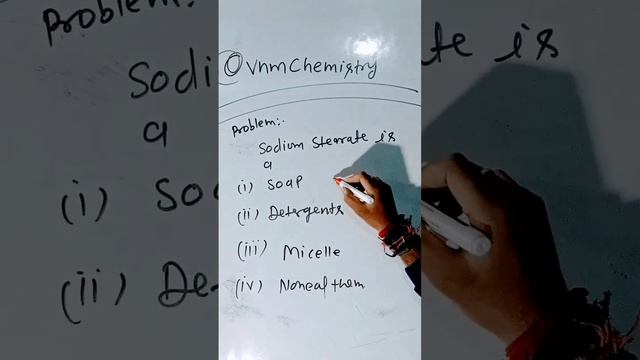 @VnmChemistry
Problem:-
Sodium Stearate is
a
(i) Soap
(ii) Detergents
(iii) Micelle
(iv)